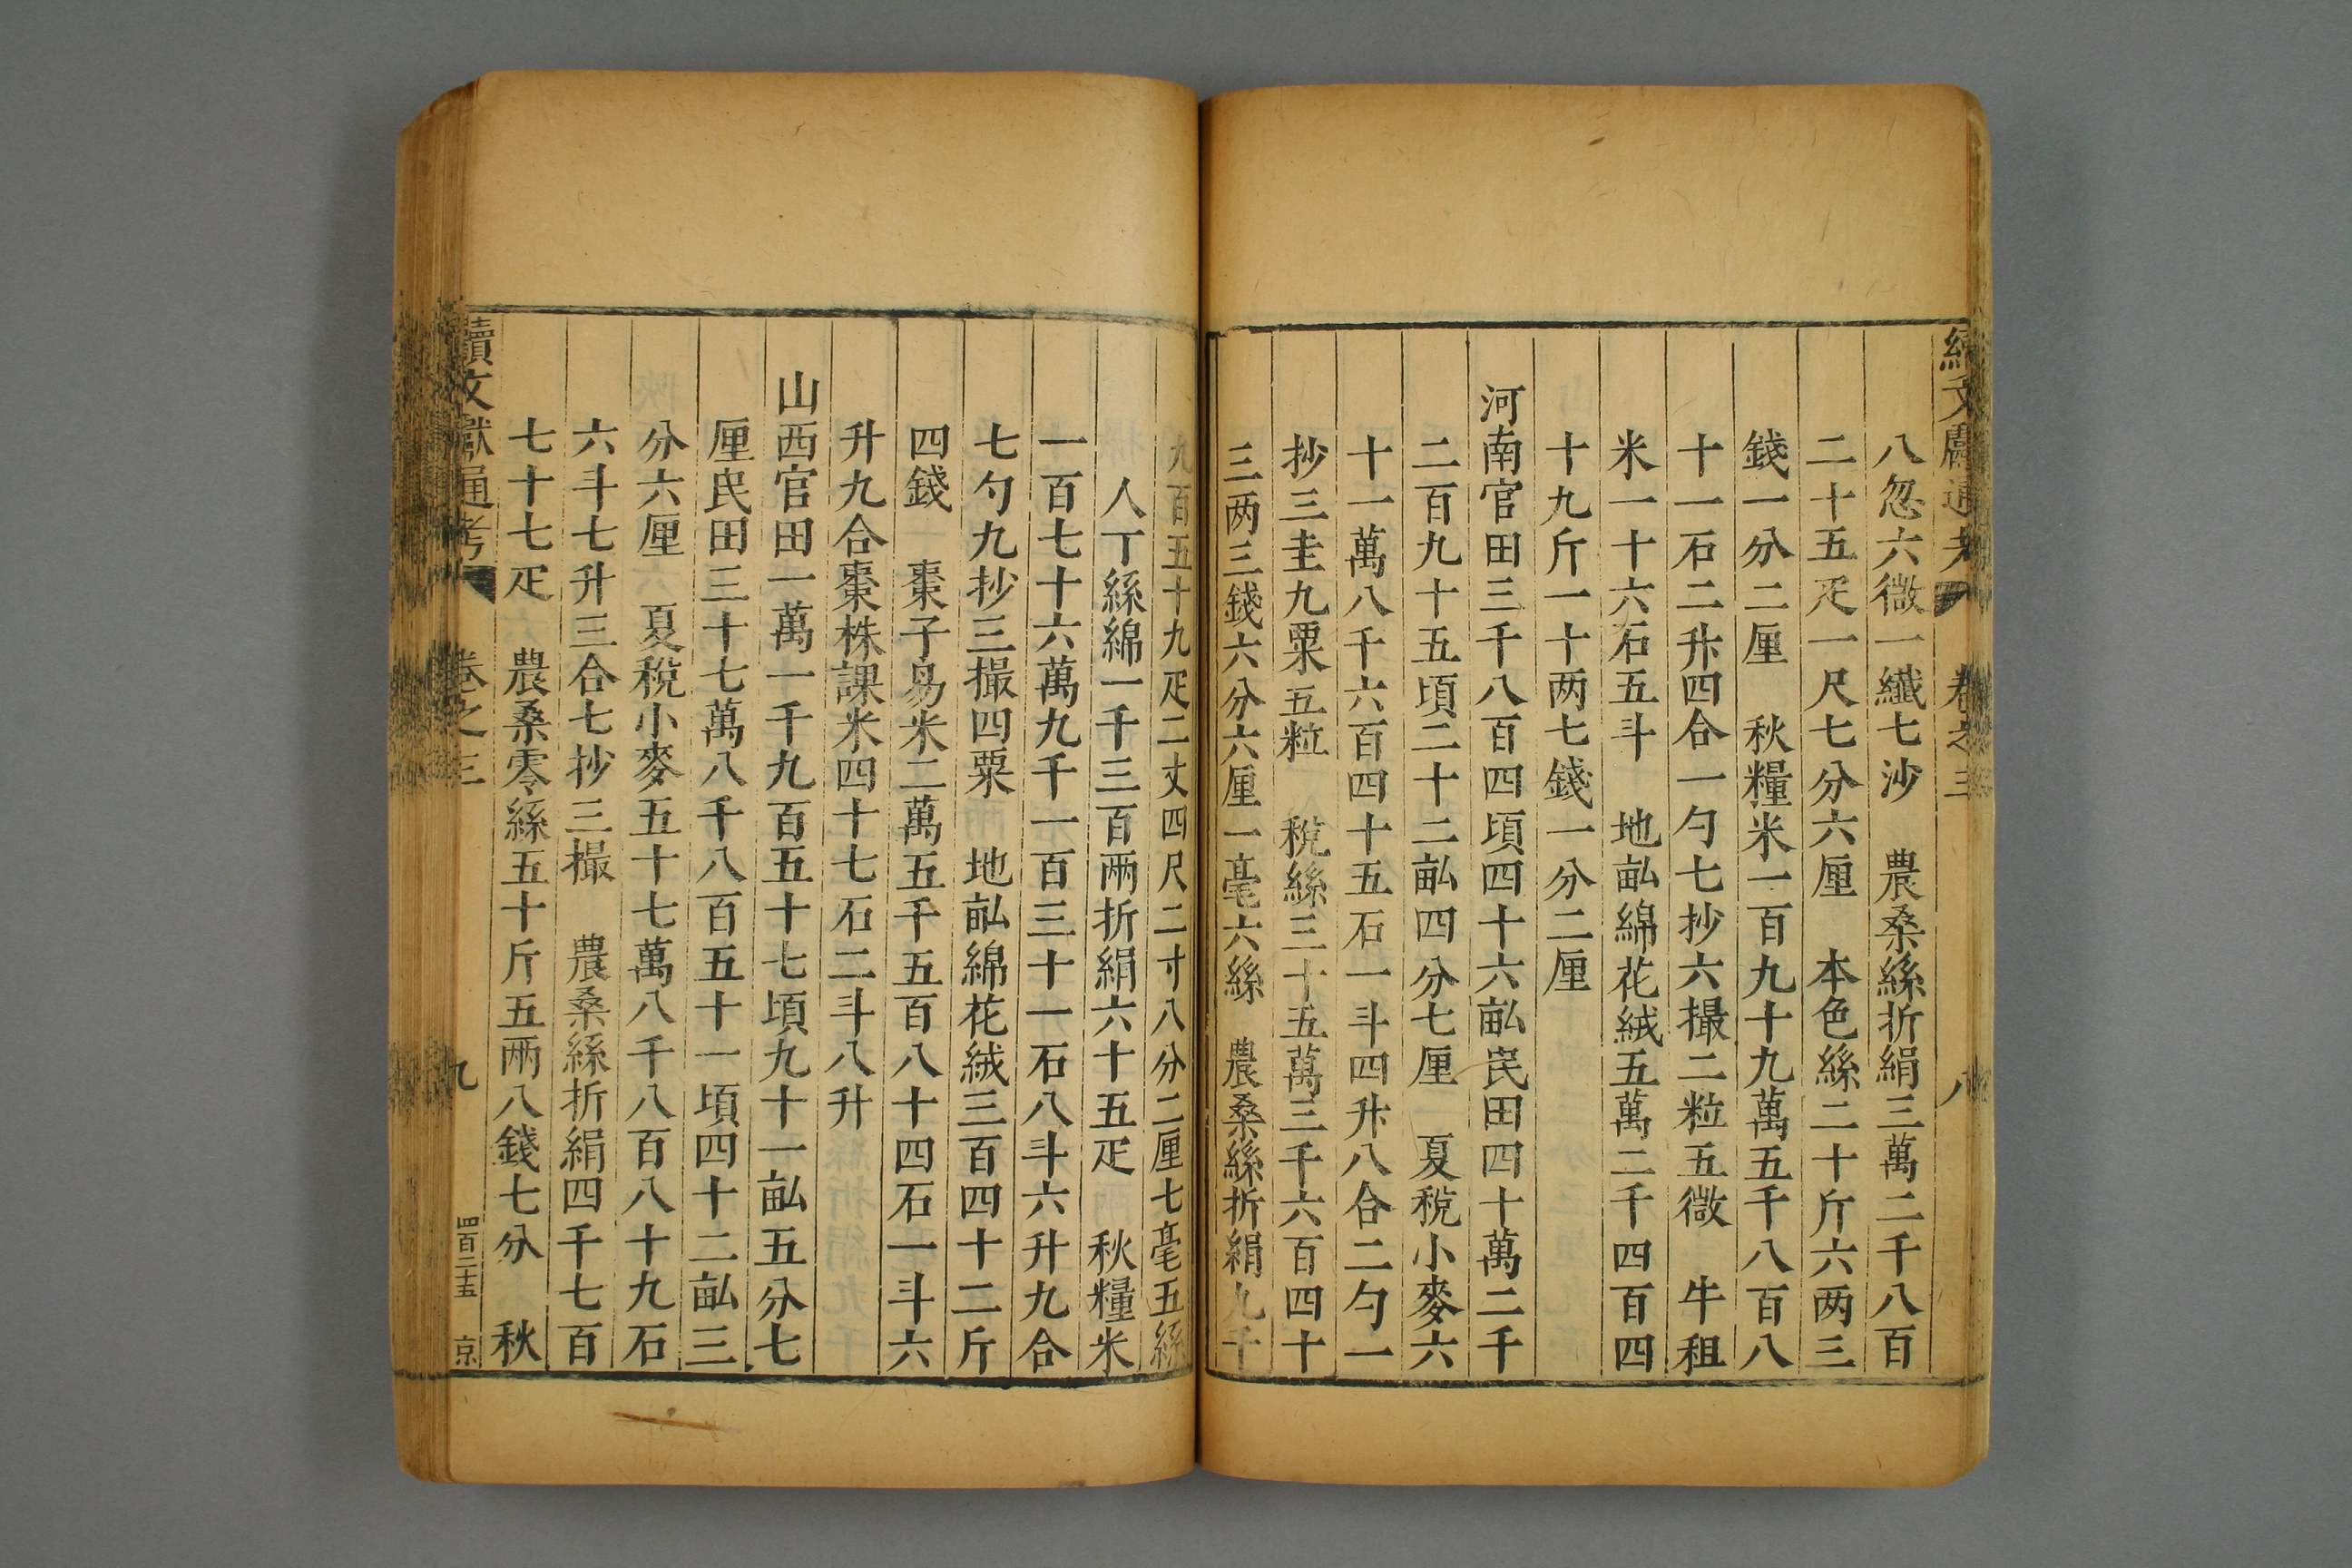 續文獻通考 卷之三 八
八忽六微一纖七沙 農桑絲折絹三萬二千八百
二十五疋一尺七分六厘 本色絲二十斤六两三
錢一分二厘 秋糧米一百九十九萬五千八百八
十一石二升四合一勺七抄六撮二粒五微 牛租
米一十六石五斗 地畝綿花絨五萬二千四百四
十九斤一十两七錢一分二厘
河南官田三千八百四頃四十六畝民田四十萬二千
二百九十五頃二十二畝四分七厘 夏稅小麥六
十一萬八千六百四十五石一斗四升八合二勺一
抄三圭九粟五粒 稅絲三十五萬三千六百四十
三两三錢六分六厘一毫六絲 農桑絲折絹九千
九百五十九疋二丈四尺二寸八分二厘七毫五絲
人丁絲綿一千三百兩折絹六十五疋 秋糧米
一百七十六萬九千一百三十一石八斗六升九合
七勺九抄三撮四粟 地畝綿花絨三百四十二斤
四錢 棗子易米二萬五千五百八十四石一斗六
升九合棗株課米四十七石二斗八升
山西官田一萬一千九百五十七頃九十一畝五分七
厘民田三十七萬八千八百五十一頃四十二畝三
分六厘 夏稅小麥五十七萬八千八百八十九石
六斗七升三合七抄三撮 農桑絲折絹四千七百
七十七疋 農桑零絲五十斤五兩八錢七分 秋
續文獻通考 卷之三 九 四百二十五 京